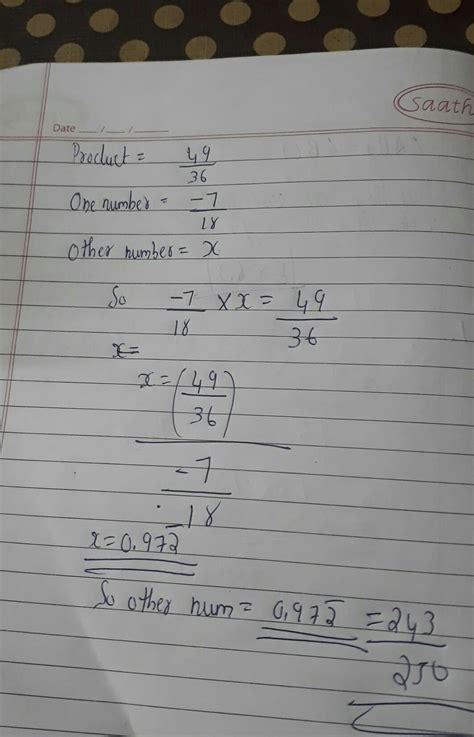 Saath
Date __/__/____
Product = 49/36
One number = -7/18
Other number = x
So -7/18 × x = 49/36
x=
x = (49/36)
-7/-18
x = 0.972
So other num = 0.972 = 243/250